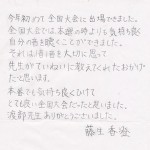 今年初めて全国大会に出場できました。
全国大会では本選の時よりも気持ち良く
自分の音を聴くことができました。
それは1音1音を大切に思って
先生がていねいに教えてくれたおかげ
だと思います。
本番でも気持ち良くひけて
とても良い全国大会だったと思いました。
渡部先生ありがとうございました。
藤生 香